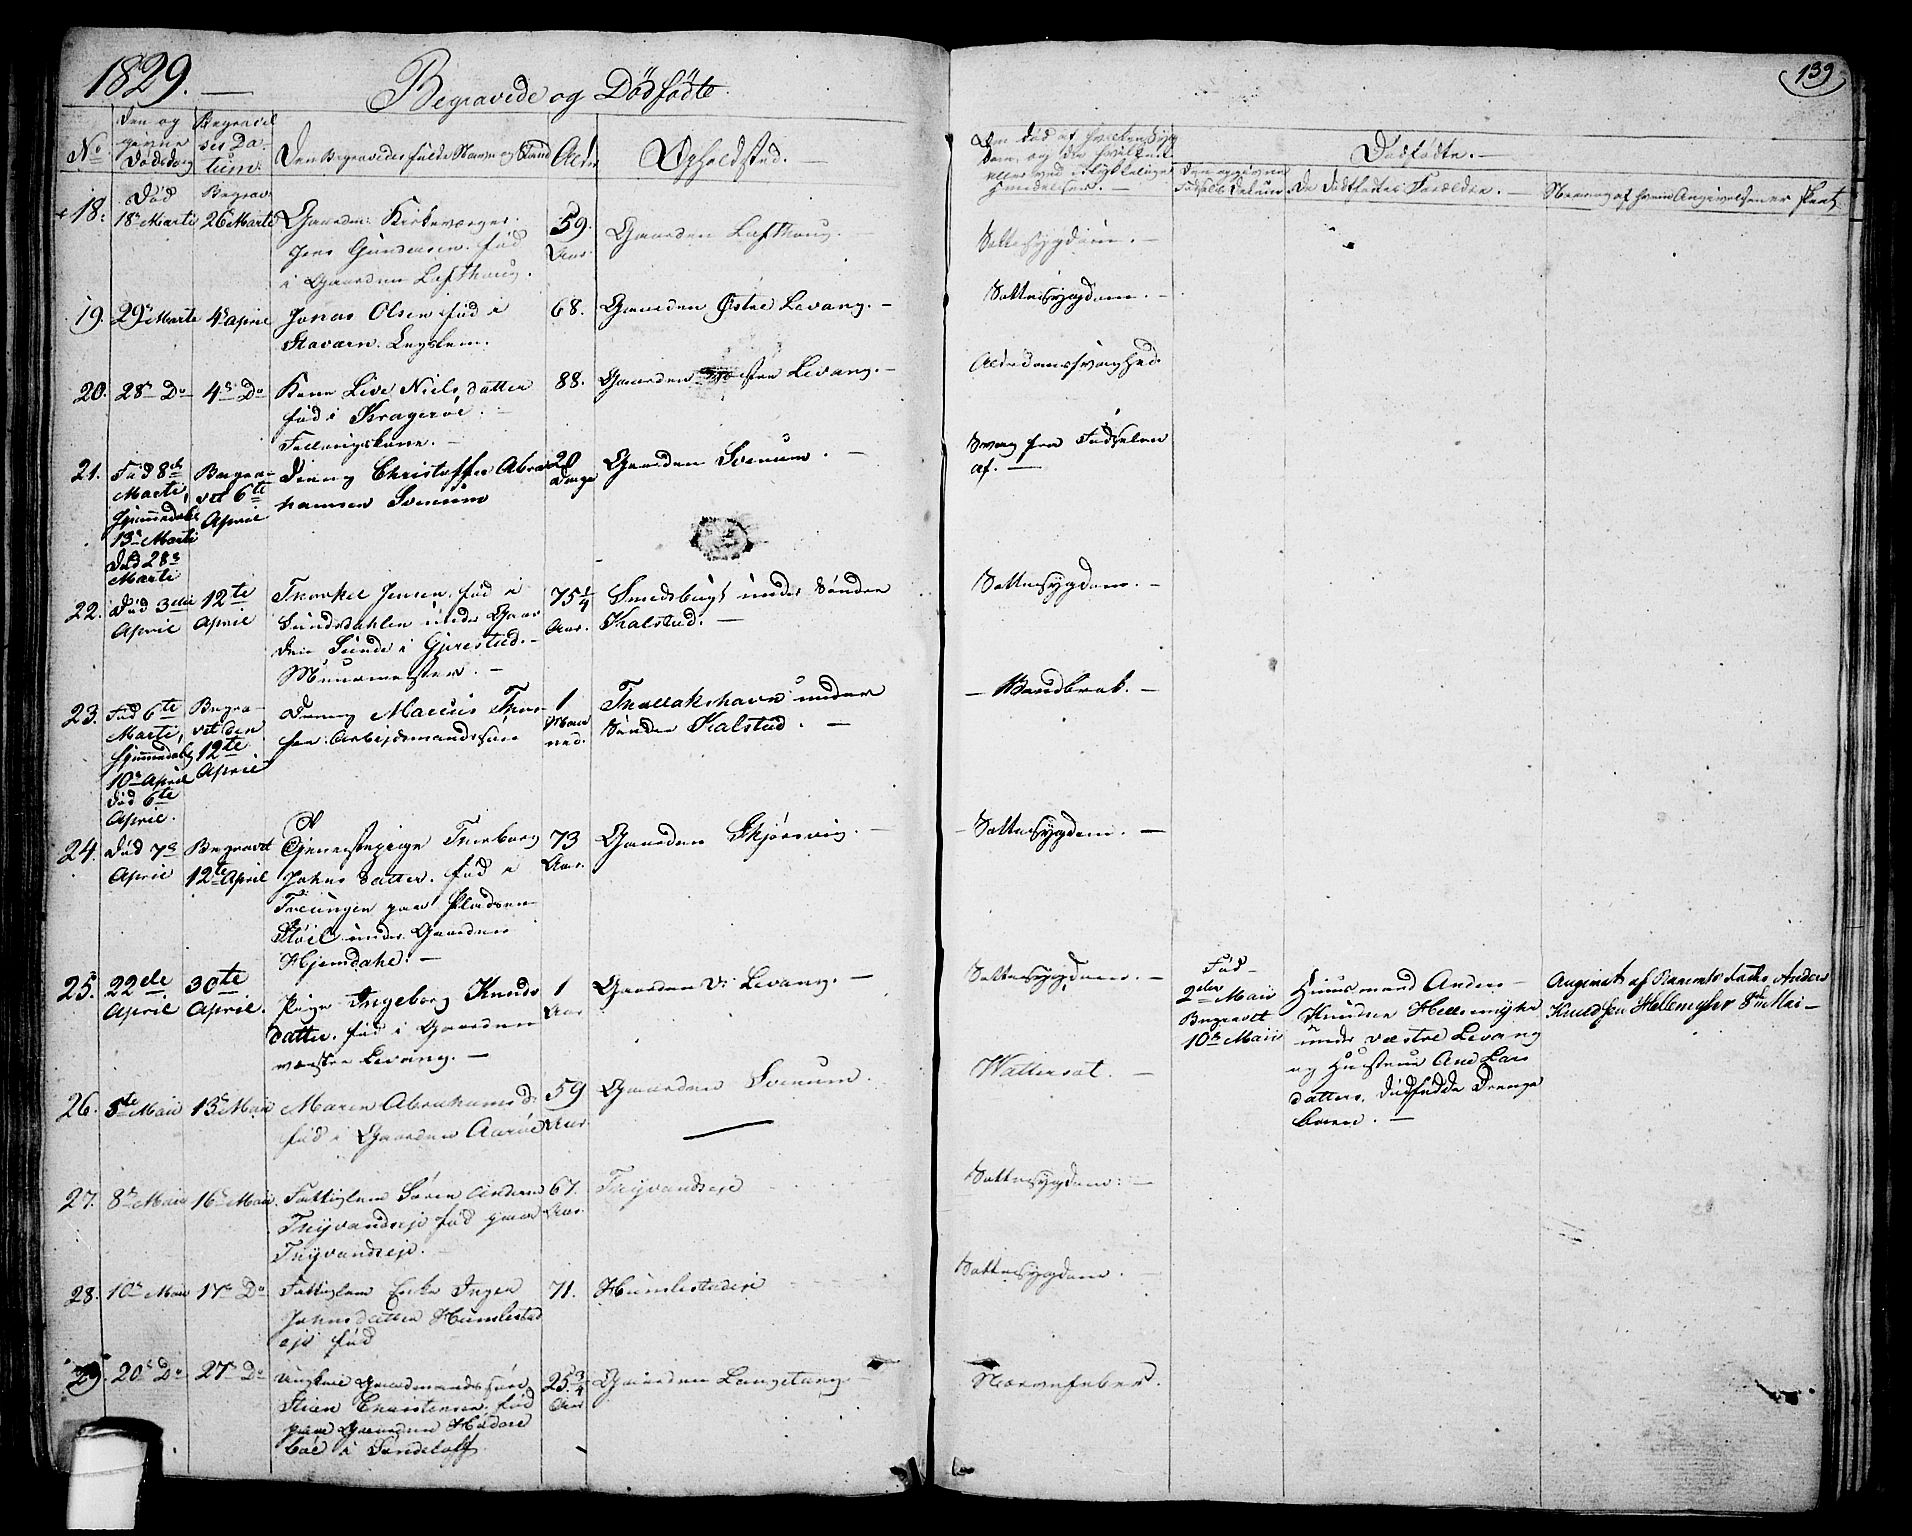 1829. —
Begravede og Dødfødte
139
No
Den og
givne
Dødsdag
Begravel
ses Da-
tum.
Den Begravedes fulde Navn og Stand
Alder
Opholdsted. —
Dødfødte. —
De Dødfødtes Forældre. —
18.
Død
18de Marti
Begrav.
26de Marti
Gaardm: Kirkeværger
Jens Gundersen. fød
i Gaarden Lofthoug.
59.
Aar.
Gaarden Lofthoug. —
Sottesygdom. —
19.
29de Marti
4de April
Jonas Olsen fød i
Staværn. Legslem.
68.
Gaarden Østre Levang. —
Sottesygdom. —
20.
28de Do
4de Do
Kone Live Nielsdatter
fød i Kragerøe. —
Fattigkone. —
88.
Gaarden Levang. —
Alderdomssvaghed.
21.
Fød 8de
Marti,
hjemmedøbt
13de Marti
Død 28de
Marti
Begra-
vet 6te
April
Dreng Christoffer Abra-
hamsen Svenum
20
Dage
Gaarden Svenum. —
Svag fra Fødselen
af. —
22.
Død 3die
April
12te
April
Torkel Jensen. fød i
Sundsdahlen under Gaar
den Sunde i Gjerestad. —
Muurmester. —
75 1/4
Aar.
Smedsbugt under Sønder
Kalstad. —
Sottesygdom. —
23.
Fød 6te
Marti,
hjemmedøbt
10de April
Død 6te
April.
Begra-
vet den
12te
April
Dreng Marcus Thor-
sen Arbejdsmandssøn
1
Maa
ned.
Torlakshavn under
Sønder Kalstad. —
— Bandbrok. —
24.
Død 7de
April
Begravet
12te April
Tjenestepige Torborg
Johns datter. fød i
Treungen paa Pladsen
Støil under Gaarden
Hjemdahl. —
73
Aar.
Gaarden Skjørsvig. —
— Sottesygdom. —
25.
22de
April
30te
April.
Pige Ingeborg Knuds
datter. fød i Gaarden
væstre Levang. —
1
Aar
Gaarden V: Levang. —
Sottesygdom. —
Fød
2den Maii
Begravet
10de Maii
Huusmand Anders
Knudsen Hellemyhr
under væstre Levang
og Hustrue Ane Lars
datters. dødfødde Drenge
barn. —
Angivet af Barnets Fader Anders
Knudsen Hellemyhr 8de Mai —
26.
5te Maii
13de Maii
Maren Abrahamsd:
fød i Gaarden Aarøe
59
Aar
Gaarden Svenum.
Wattersot. —
27.
8de Maii
16de Maii
Fattiglem Søren Anders
Treyvandseje fød paa
Treyvandseje. —
67.
Aar.
Treyvandseje
Sottesygdom: —
28.
10de Maii
17de Do
Fattiglem Enke Inger
Johnsdatter Humlestad
eje fød
71.
Humlestadeje
Sottesygdom. —
29.
20de Do
27de Do
Ungkarl Gaardmandssøn
Steen Christensen. fød
paa Gaarden
i Sandeløff.
25 3/4
Aar
Gaarden Langetang. —
Nervefeber.